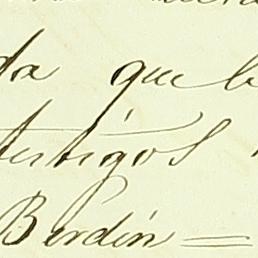 da que l
testigos
Berdín =